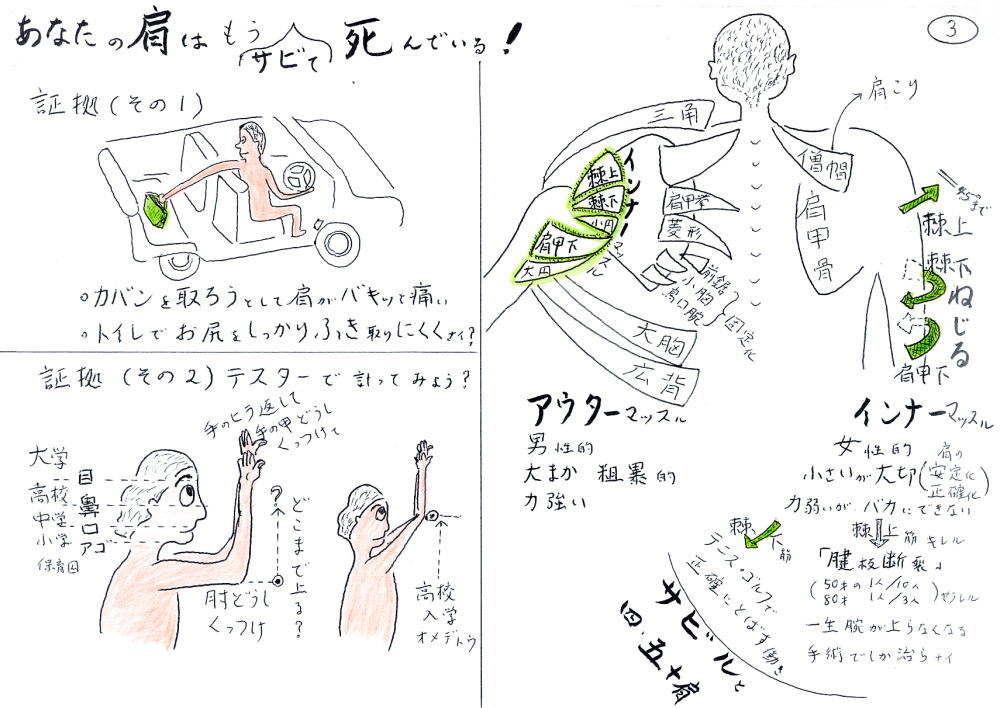 あなたの肩はもう
サビて
死んでいる!
3
証拠(その1)
○カバンを取ろうとして肩がバキッて痛い
○トイレでお尻をしっかりふき取りにくくナイ?
証拠(その2)テスターで計ってみよう?
手のヒラ返して
手の甲どうし
くっつけて
大学
目
高校
鼻
中学
口
小学
アゴ
保育園
?
どこまで上る?
肘どうし
くっつけ
高校
入学
オメデトウ
肩こり
三角
僧帽
インナーマッスル
棘上
棘下
小円
肩甲下
大円
肩甲挙
菱形
前鋸
小胸
烏口腕
固定化
大胸
広背
肩甲骨
45°まで
棘上
棘下
ねじる
肩甲下
アウターマッスル
男性的
大まか 粗暴的
力強い
インナーマッスル
女性的
小さいが大切(肩の安定化 正確化)
力弱いがバカにできない
棘上筋キレル
「腱板断裂」
(50才の 1人/10人
80才 1人/3人)ダラレル
一生腕が上らなくなる
手術でしか治らナイ
棘下筋
テニス・ゴルフで
正確にとばす働き
サビルと
四、五十肩